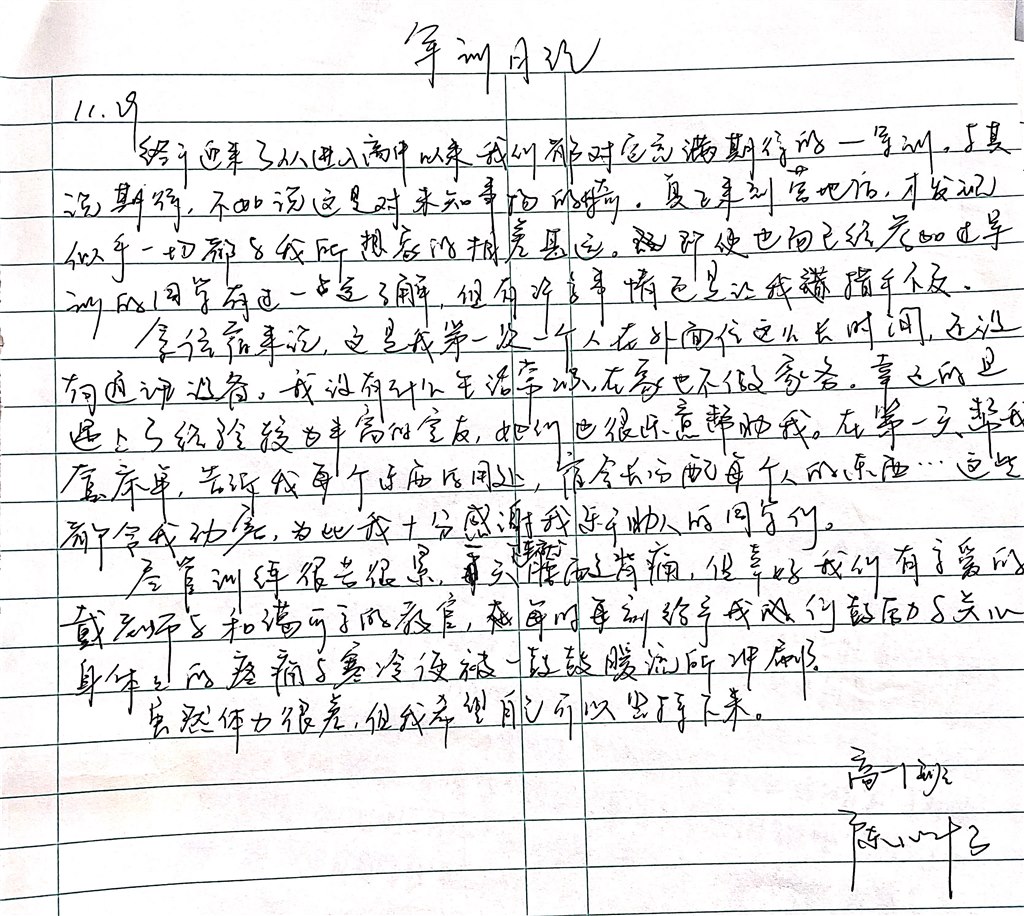 军训日记
11.29
终于迎来了从进入高中以来我们都对它充满期待的一军训。与其
说期待，不如说这是对未知事物的好奇。真正来到营地后，才发现
似乎一切都与我所想象的相差甚远。即使也曾已经参加过军
训的同学有过一点点了解，但有许多事情还是让我措手不及。
拿住宿来说，这是我第一次一个人在外面住这么长时间，还没
有通讯设备。我没有什么生活常识，在家也不做家务。幸运的是
遇上了经验较为丰富的室友，她们也很乐意帮助我。在第一天帮我
套床单，告诉我每个东西的用处，宿舍长分配每个人的东西…这些
都令我动容，为此我十分感谢我乐于助人的同学们。
尽管训练很苦很累，每天腰酸背痛，但幸好我们有可爱的
戴老师与和蔼可亲的教官，每时每刻给予我们鼓励与关心
身体上的疼痛与寒冷便被一股股暖流所冲刷。
虽然体力很差，但我希望自己可以坚持下来。
高一班
陈小叶子